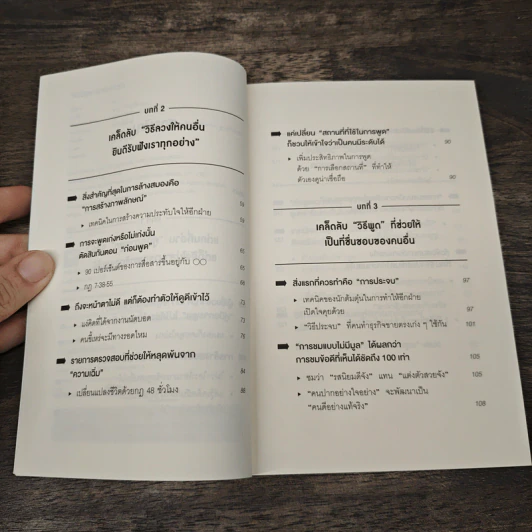 บทที่ 2
เคล็ดลับ "วิธีลวงให้คนอื่น
ยินดีรับฟังเราทุกอย่าง"
สิ่งสำคัญที่สุดในการล้างสมองคือ
"การสร้างภาพลักษณ์"
เทคนิคในการสร้างความประทับใจให้อีกฝ่าย
การจะพูดเก่งหรือไม่เก่งนั้น
ตัดสินกันตอน "ก่อนพูด"
90 เปอร์เซ็นต์ของการสื่อสารขึ้นอยู่กับ ○○
กฎ 7-38-55
ถึงจะหน้าตาไม่ดี แต่ก็ต้องทำตัวให้ดูดีเข้าไว้
แง่คิดที่ได้จากงานนัดบอด
คนขี้เหร่จะมีทางรอดไหม
รายการตรวจสอบที่ช่วยให้หลุดพ้นจาก
"ความเฉิ่ม" 84
เปลี่ยนแปลงชีวิตด้วยกฎ 48 ชั่วโมง 86
แค่เปลี่ยน "สถานที่ที่ใช้ในการพูด"
ก็ชวนให้เข้าใจว่าเป็นคนมีระดับได้ 90
เพิ่มประสิทธิภาพในการพูด
ด้วย "การเลือกสถานที่" ที่ทำให้
ตัวเองดูน่าเชื่อถือ
บทที่ 3
เคล็ดลับ "วิธีพูด" ที่ช่วยให้
เป็นที่ชื่นชอบของคนอื่น
สิ่งแรกที่ควรทำคือ "การประจบ" 97
เทคนิคของนักต้มตุ๋นในการทำให้อีกฝ่าย
เปิดใจคุยด้วย 97
"วิธีประจบ" ที่คนทำธุรกิจขายตรงเก่ง ๆ ใช้กัน 101
"การชมแบบไม่มีมูล" ได้ผลกว่า
การชมข้อดีที่เห็นได้ชัดถึง 100 เท่า 105
ชมว่า "รสนิยมดีจัง" แทน "แต่งตัวสวยจัง" 105
"คนปากอย่างใจอย่าง" จะพัฒนาเป็น
"คนดีอย่างแท้จริง" 108